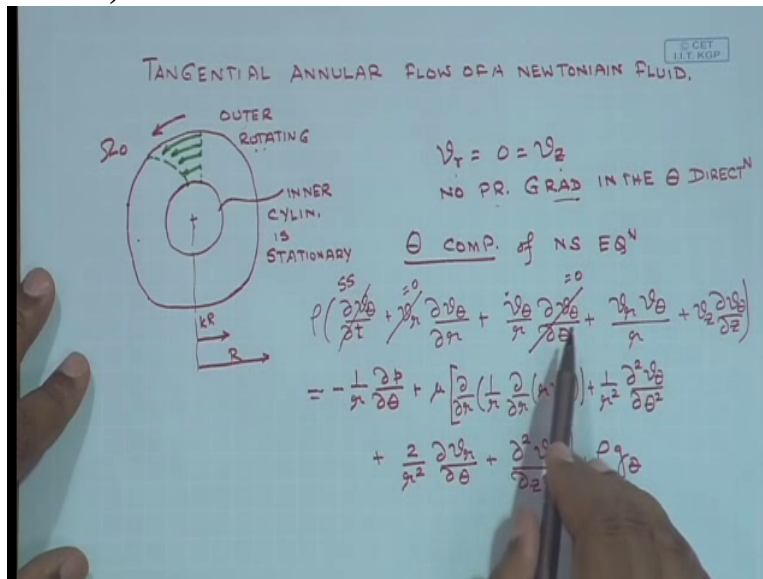 © CET
I.I.T. KGP
TANGENTIAL ANNULAR FLOW OF A NEWTONIAIN FLUID.
OUTER
ROTATING
Ω0
INNER
CYLIN.
IS
STATIONARY
kR
R
vr = 0 = vz
NO PR. GRAD IN THE θ DIRECTᴺ
θ COMP. of NS EQᴺ
SS =0 =0
ρ(∂vθ/∂t + vr ∂vθ/∂r + vθ/r ∂vθ/∂θ + vr vθ/r + vz ∂vθ/∂z)
= - 1/r ∂p/∂θ + μ[∂/∂r(1/r ∂/∂r(r ) + 1/r² ∂²vθ/∂θ²
+ 2/r² ∂vr/∂θ + ∂²v /∂z + ρgθ